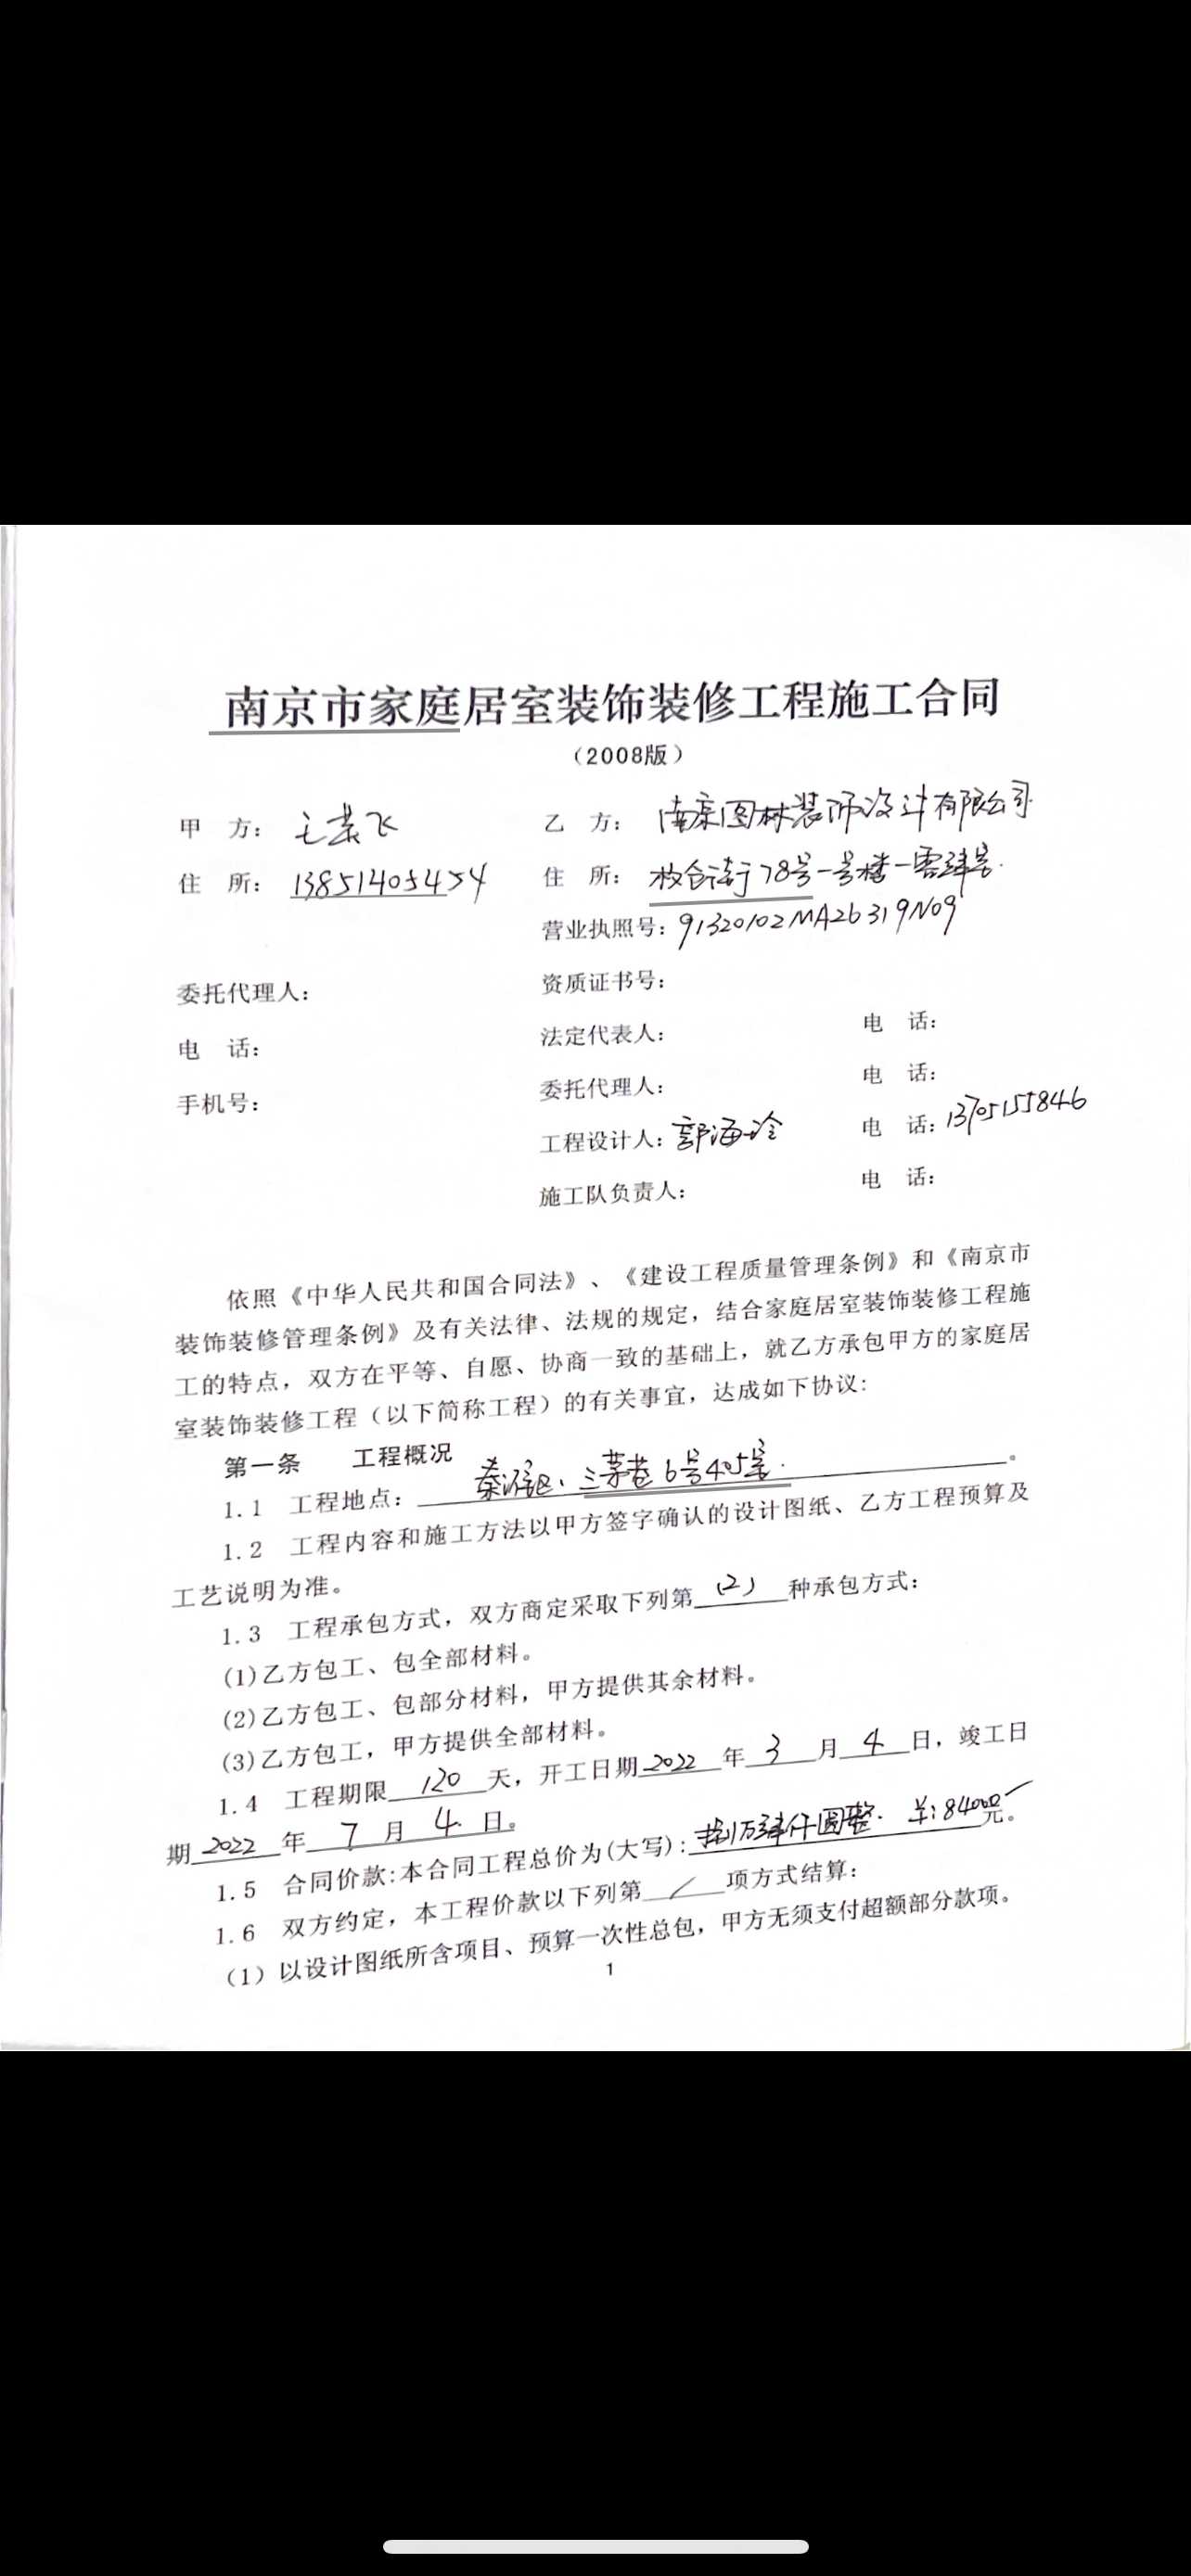 南京市家庭居室装饰装修工程施工合同
（2008版）
甲 方： 王荣飞
乙 方： 南京图林装饰设计有限公司
住 所： 13851405454
住 所： 78号一号楼一零肆号.
营业执照号：91320102MA26319N09
委托代理人：
资质证书号：
电 话：
法定代表人： 电 话：
手机号：
委托代理人： 电 话：
工程设计人：郭海玲 电 话：13705155846
施工队负责人： 电 话：
依照《中华人民共和国合同法》、《建设工程质量管理条例》和《南京市
装饰装修管理条例》及有关法律、法规的规定，结合家庭居室装饰装修工程施
工的特点，双方在平等、自愿、协商一致的基础上，就乙方承包甲方的家庭居
室装饰装修工程（以下简称工程）的有关事宜，达成如下协议：
第一条 工程概况
1.1 工程地点：秦淮区、三茅巷6号405室.。
1.2 工程内容和施工方法以甲方签字确认的设计图纸、乙方工程预算及
工艺说明为准。
1.3 工程承包方式，双方商定采取下列第(2)种承包方式：
(1)乙方包工、包全部材料。
(2)乙方包工、包部分材料，甲方提供其余材料。
(3)乙方包工，甲方提供全部材料。
1.4 工程期限120天，开工日期2022年3月4日，竣工日
期2022年7月4日。
1.5 合同价款:本合同工程总价为(大写)：捌万肆仟圆整. ¥:84000元。
1.6 双方约定，本工程价款以下列第/项方式结算：
（1）以设计图纸所含项目、预算一次性总包，甲方无须支付超额部分款项。
1